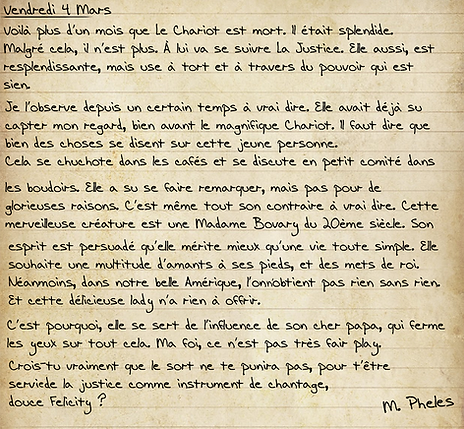 Vendredi 4 Mars
Voilà plus d'un mois que Le Chariot est mort. Il était splendide.
Malgré cela, il n'est plus. À lui va se suivre La Justice. Elle aussi, est
resplendissante, mais use à tort et à travers du pouvoir qui est
sien.
Je l'observe depuis un certain temps à vrai dire. Elle avait déjà su
capter mon regard, bien avant le magnifique Chariot. Il faut dire que
bien des choses se disent sur cette jeune personne.
Cela se chuchote dans les cafés et se discute en petit comité dans
les boudoirs. Elle a su se faire remarquer, mais pas pour de
glorieuses raisons. C'est même tout son contraire à vrai dire. Cette
merveilleuse créature est une Madame Bovary du 20ème siècle. Son
esprit est persuadé qu'elle mérite mieux qu'une vie toute simple. Elle
souhaite une multitude d'amants à ses pieds, et des mets de roi.
Néanmoins, dans notre belle Amérique, l'onn'obtient pas rien sans rien.
Et cette délicieuse lady n'a rien à offrir.
C'est pourquoi, elle se sert de l'influence de son cher papa, qui ferme
les yeux sur tout cela. Ma foi, ce n'est pas très fair play.
Crois-tu vraiment que le sort ne te punira pas, pour t'être
serviede la justice comme instrument de chantage,
douce Felicity ?
M. Pheles